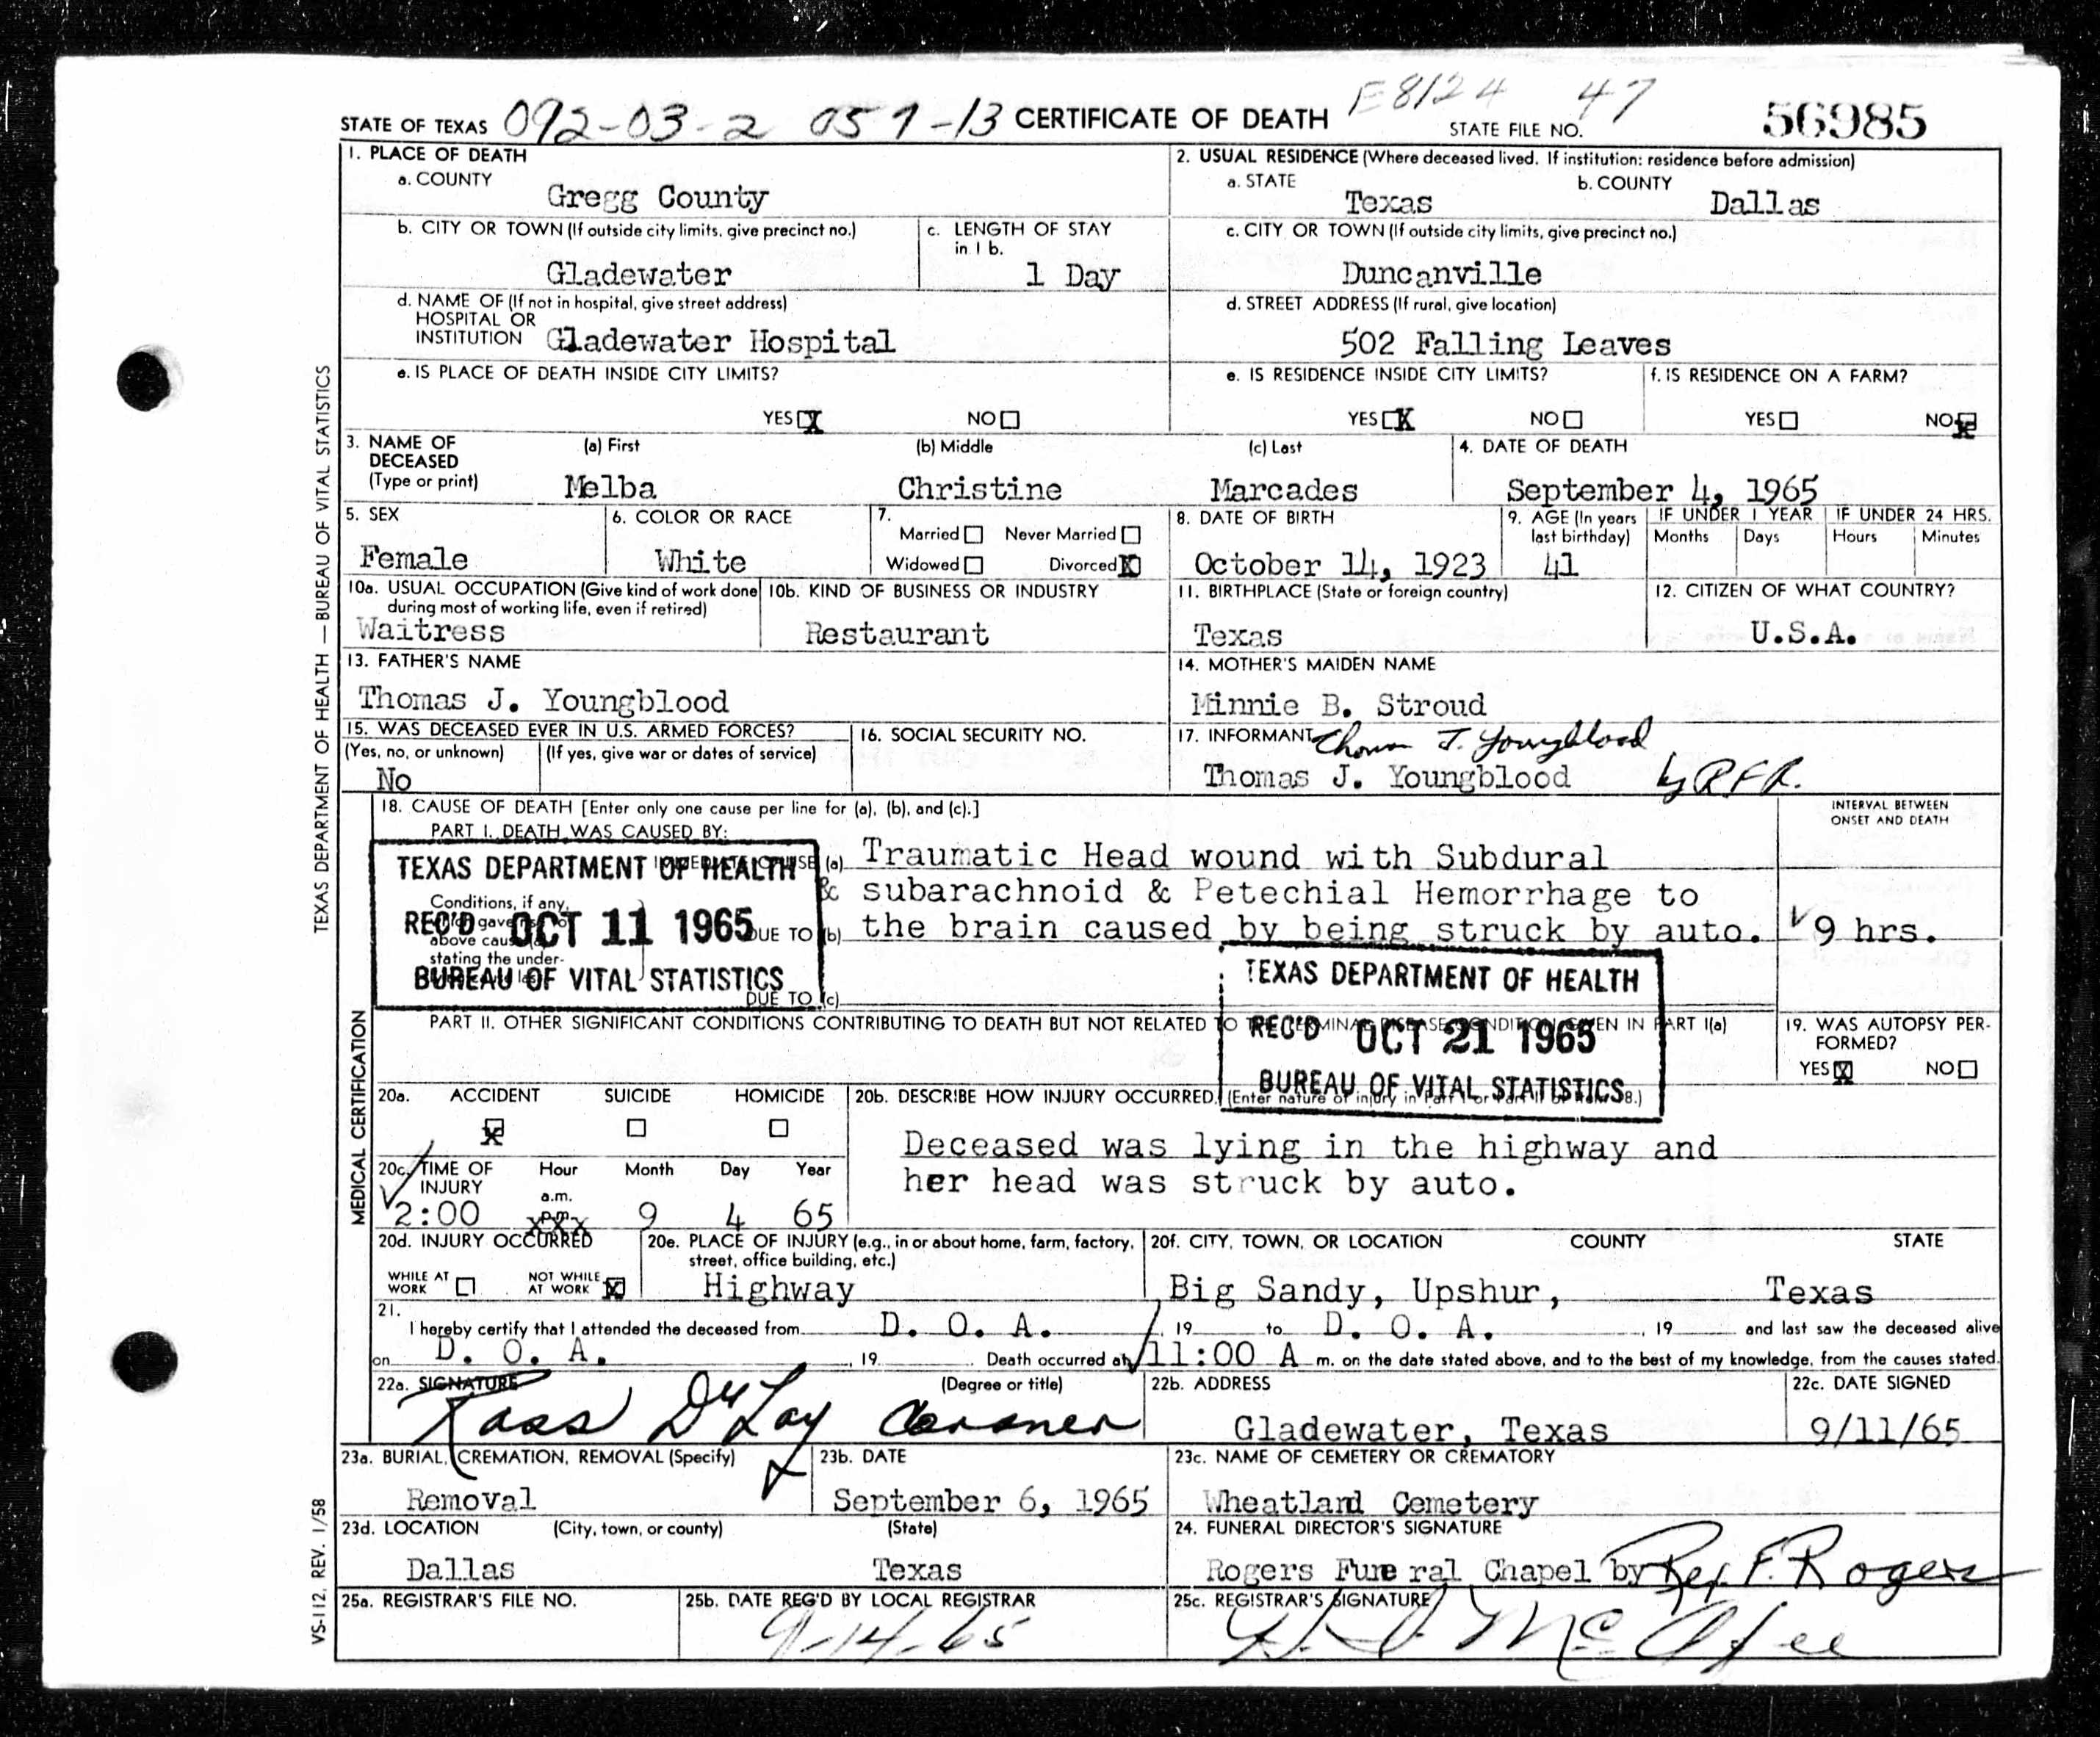 STATE OF TEXAS 092-03-2 059-13 CERTIFICATE OF DEATH E8124 47 STATE FILE NO. 56985
1. PLACE OF DEATH
a. COUNTY
Gregg County
2. USUAL RESIDENCE (Where deceased lived. If institution: residence before admission)
a. STATE b. COUNTY
Texas Dallas
b. CITY OR TOWN (If outside city limits, give precinct no.)
Gladewater
c. LENGTH OF STAY
in 1 b.
1 Day
c. CITY OR TOWN (If outside city limits, give precinct no.)
Duncanville
d. NAME OF (If not in hospital, give street address)
HOSPITAL OR
INSTITUTION Gladewater Hospital
d. STREET ADDRESS (If rural, give location)
502 Falling Leaves
e. IS PLACE OF DEATH INSIDE CITY LIMITS?
YES X NO
e. IS RESIDENCE INSIDE CITY LIMITS?
YES X NO
f. IS RESIDENCE ON A FARM?
YES NO X
3. NAME OF
DECEASED
(Type or print)
(a) First (b) Middle (c) Last
Melba Christine Marcades
4. DATE OF DEATH
September 4, 1965
5. SEX
Female
6. COLOR OR RACE
White
7.
Married Never Married
Widowed Divorced X
8. DATE OF BIRTH
October 14, 1923
9. AGE (In years
last birthday)
41
IF UNDER 1 YEAR IF UNDER 24 HRS.
Months Days Hours Minutes
10a. USUAL OCCUPATION (Give kind of work done
during most of working life, even if retired)
Waitress
10b. KIND OF BUSINESS OR INDUSTRY
Restaurant
11. BIRTHPLACE (State or foreign country)
Texas
12. CITIZEN OF WHAT COUNTRY?
U.S.A.
13. FATHER'S NAME
Thomas J. Youngblood
14. MOTHER'S MAIDEN NAME
Minnie B. Stroud
15. WAS DECEASED EVER IN U.S. ARMED FORCES?
(Yes, no, or unknown) (If yes, give war or dates of service)
No
16. SOCIAL SECURITY NO.
17. INFORMANT Thomas J. Youngblood
Thomas J. Youngblood by RFR.
18. CAUSE OF DEATH [Enter only one cause per line for (a), (b), and (c).]
PART I. DEATH WAS CAUSED BY:
INTERVAL BETWEEN
ONSET AND DEATH
IMMEDIATE CAUSE (a) Traumatic Head wound with Subdural
& subarachnoid & Petechial Hemorrhage to
DUE TO (b) the brain caused by being struck by auto. 9 hrs.
Conditions, if any,
which gave
above cause
stating the under-
DUE TO (c)
TEXAS DEPARTMENT OF HEALTH
REC'D OCT 11 1965
BUREAU OF VITAL STATISTICS
TEXAS DEPARTMENT OF HEALTH
REC'D OCT 21 1965
BUREAU OF VITAL STATISTICS
PART II. OTHER SIGNIFICANT CONDITIONS CONTRIBUTING TO DEATH BUT NOT RELATED TO THE TERMINAL DISEASE CONDITION GIVEN IN PART I(a)
19. WAS AUTOPSY PER-
FORMED?
YES X NO
20a. ACCIDENT SUICIDE HOMICIDE
X
20b. DESCRIBE HOW INJURY OCCURRED. (Enter nature of injury in Part I or Part II of item 18.)
Deceased was lying in the highway and
her head was struck by auto.
20c. TIME OF
INJURY
Hour Month Day Year
a.m.
p.m.
2:00 xxx 9 4 65
20d. INJURY OCCURRED
WHILE AT
WORK
NOT WHILE
AT WORK X
20e. PLACE OF INJURY (e.g., in or about home, farm, factory,
street, office building, etc.)
Highway
20f. CITY, TOWN, OR LOCATION COUNTY STATE
Big Sandy, Upshur, Texas
21.
I hereby certify that I attended the deceased from D. O. A. , 19 to D. O. A. , 19 and last saw the deceased alive
on D. O. A. , 19 . Death occurred at 11:00 A m. on the date stated above, and to the best of my knowledge, from the causes stated.
22a. SIGNATURE (Degree or title)
Ross DeLay Coroner
22b. ADDRESS
Gladewater, Texas
22c. DATE SIGNED
9/11/65
23a. BURIAL, CREMATION, REMOVAL (Specify)
Removal
23b. DATE
September 6, 1965
23c. NAME OF CEMETERY OR CREMATORY
Wheatland Cemetery
23d. LOCATION (City, town, or county) (State)
Dallas Texas
24. FUNERAL DIRECTOR'S SIGNATURE
Rogers Funeral Chapel by Rex F. Rogers
25a. REGISTRAR'S FILE NO.
25b. DATE REC'D BY LOCAL REGISTRAR
9-14-65
25c. REGISTRAR'S SIGNATURE
McAfee
TEXAS DEPARTMENT OF HEALTH — BUREAU OF VITAL STATISTICS
MEDICAL CERTIFICATION
VS-112. REV. 1/58